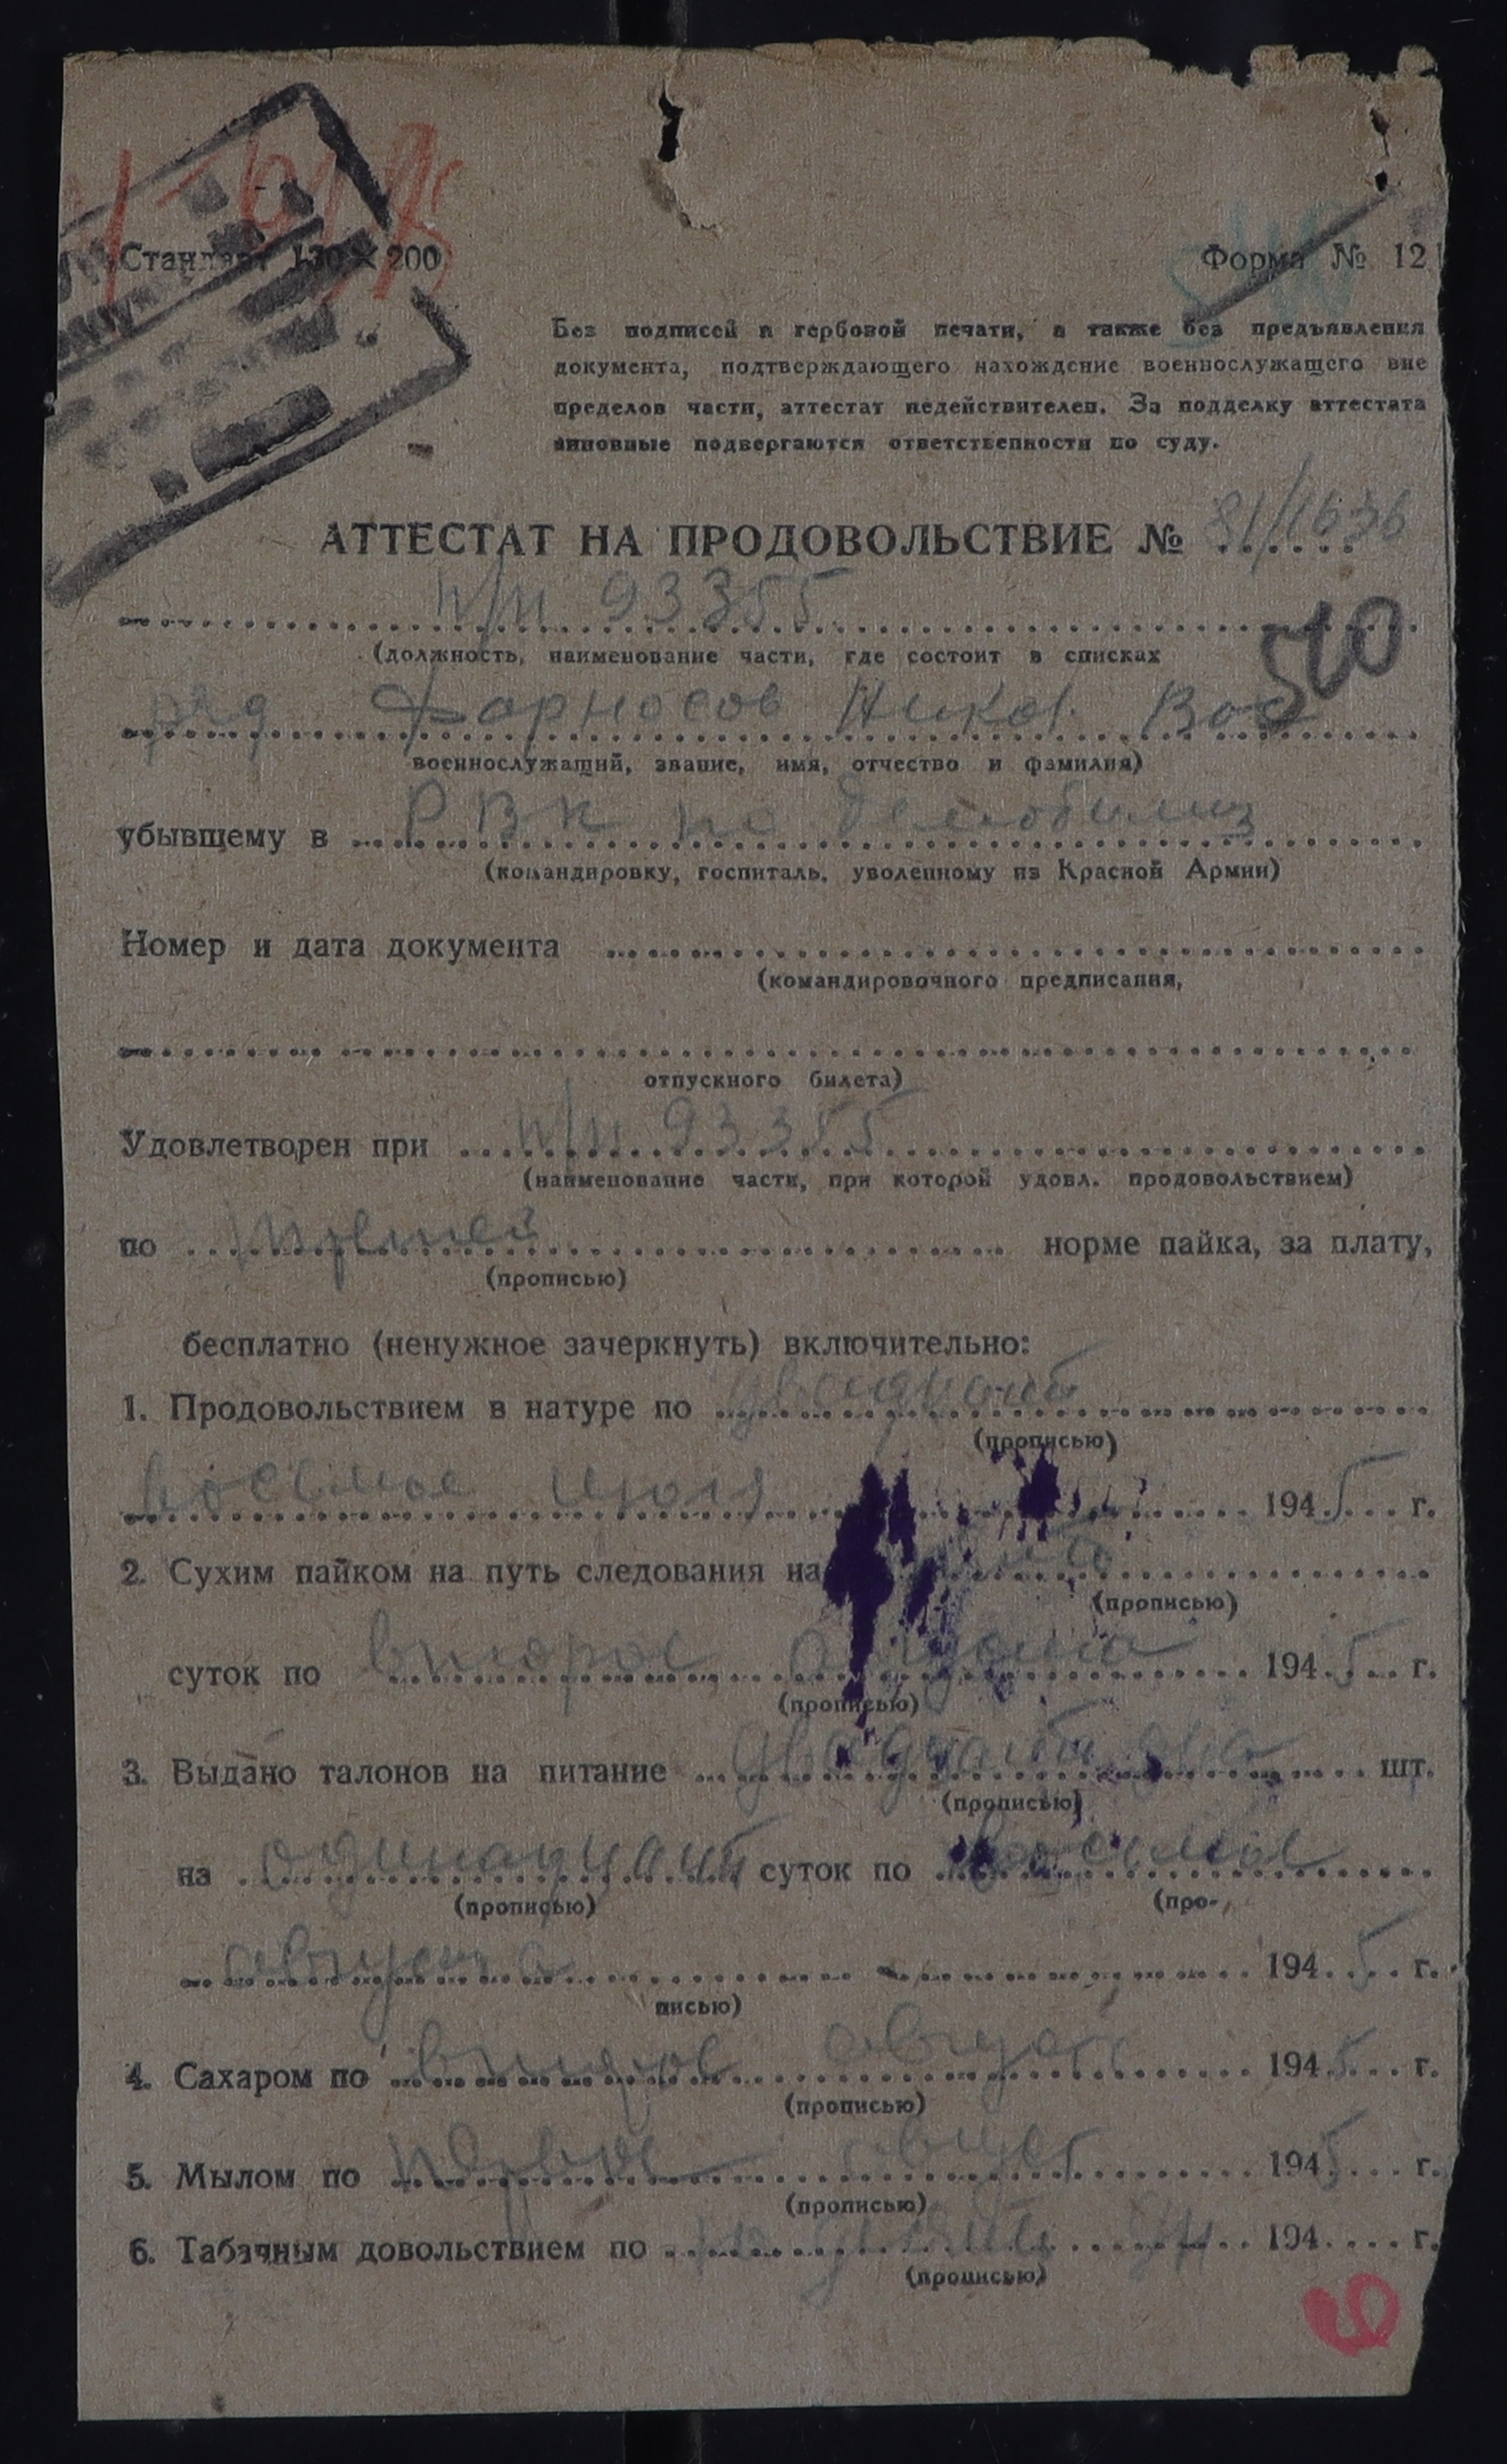 Стандарт 130 × 200
Форма № 12
Без подписей и гербовой печати, а также без предъявления
документа, подтверждающего нахождение военнослужащего вне
пределов части, аттестат недействителен. За подделку аттестата
виновные подвергаются ответственности по суду.
АТТЕСТАТ НА ПРОДОВОЛЬСТВИЕ № 81/1636
п/п 93355
510
(должность, наименование части, где состоит в списках
ряд Фарносов Никол Вас
военнослужащий, звание, имя, отчество и фамилия)
убывщему в РВК по демобилиз
(командировку, госпиталь, уволенному из Красной Армии)
Номер и дата документа
(командировочного предписания,
отпускного билета)
Удовлетворен при п/п 93355
(наименование части, при которой удовл. продовольствием)
по третьей норме пайка, за плату,
(прописью)
бесплатно (ненужное зачеркнуть) включительно:
1. Продовольствием в натуре по двадцать
(прописью)
восьмое июля 1945 г.
2. Сухим пайком на путь следования на
(прописью)
суток по второе августа 1945 г.
(прописью)
3. Выдано талонов на питание двадцать два шт.
(прописью)
на одинадцать суток по восьмое
(прописью) (про-
августа 1945 г.
писью)
4. Сахаром по второе август 1945 г.
(прописью)
5. Мылом по первое август 1945 г.
(прописью)
6. Табачным довольствием по 194 г.
(прописью)